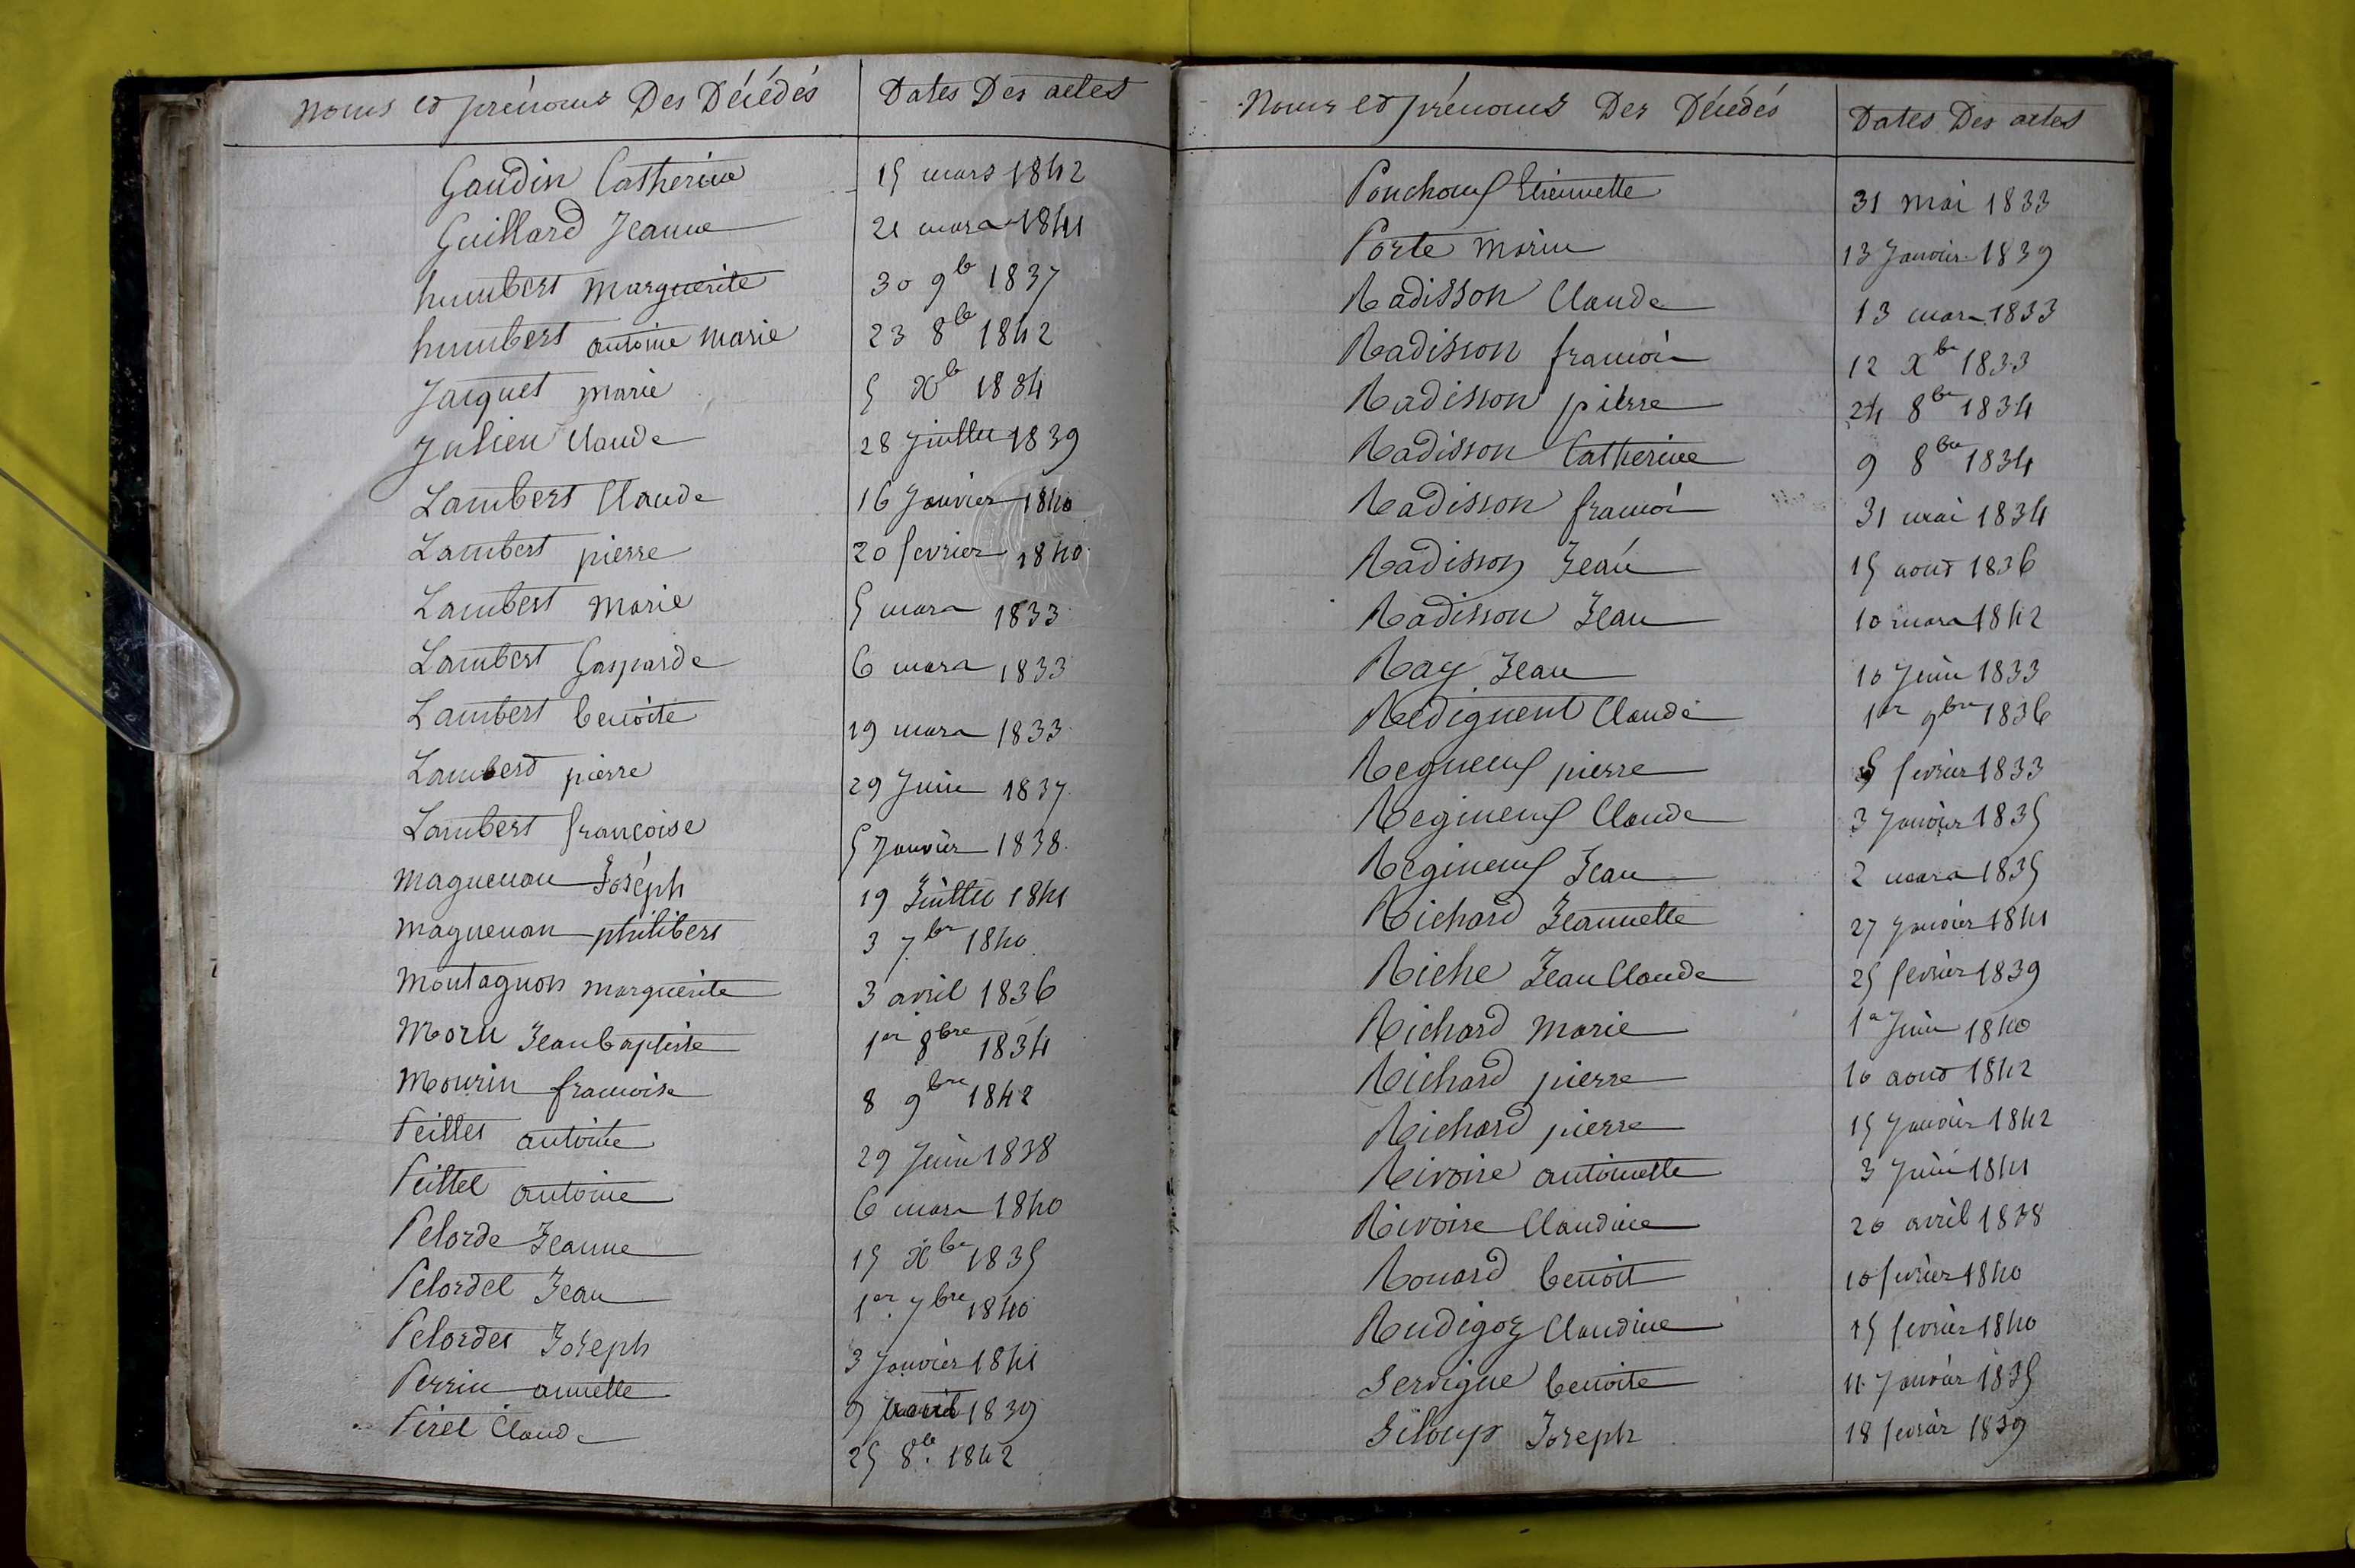 Noms et prénoms Des Décédés Dates Des actes
Gaudin Catherine 15 mars 1842
Guillard Jeanne 21 mars 1841
humbert Marguerite 30 9b 1837
humbert antoine Marie 23 8b 1842
Jacquet Marie 5 Xb 1834
Julien Claude 28 Juillet 1839
Lambert Claude 16 Janvier 1840
Lambert pierre 20 fevrier 1840
Lambert Marie 5 mars 1833
Lambert Gasparde 6 mars 1833
Lambert benoite 19 mars 1833
Lambert pierre 29 Juin 1837
Lambert françoise 5 Janvier 1838
Maguenan Joséph 19 Juillet 1841
Maguenan philibert 3 7br 1840
Montagnon Marguerite 3 avril 1836
Moru Jean baptiste 1er 8bre 1834
Mourin francoise 8 9bre 1842
Peillet antoine 29 Juin 1838
Peillet antoine 6 mars 1840
Pelorde Jeanne 15 Xbr 1835
Pelordet Jean 1er 7bre 1840
Pelordet Joseph 3 Janvier 1841
Perrin annette 9 1839
Pirel Claude 25 8b 1842
Noms et prénoms Des Décédés Dates Des actes
Ponchouf Etiennette 31 Mai 1833
Porte Marie 13 Janvier 1839
Radisson Claude 13 mars 1833
Radisson francois 12 Xbr 1833
Radisson pierre 24 8br 1834
Radisson Catherine 9 8bre 1834
Radisson francois 31 mai 1834
Radisson Jean 15 aout 1836
Radisson Jean 10 mars 1842
Ray Jean 10 Juin 1833
Redignent Claude 1er 9bre 1836
Regneuf pierre 5 fevrier 1833
Regineuf Claude 3 Janvier 1835
Regineuf Jean 2 mars 1835
Richard Jeannette 27 Janvier 1841
Riche Jean Claude 25 fevrier 1839
Richard Marie 1er Juin 1840
Richard pierre 10 aout 1842
Richard pierre 15 Janvier 1842
Rivoire antoinette 3 Juin 1841
Rivoire Claudine 20 avril 1838
Rouard benoit 10 fevrier 1840
Rudigoz Claudine 15 fevrier 1840
Servigne benoite 11 Janvier 1835
Siloup Joseph 18 fevrier 1839